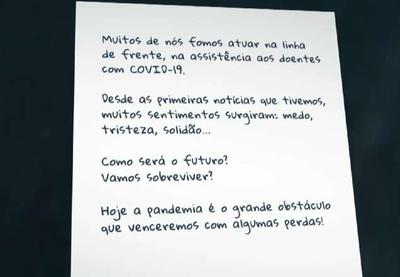 Muitos de nós fomos atuar na linha
de frente, na assistência aos doentes
com COVID-19.
Desde as primeiras notícias que tivemos,
muitos sentimentos surgiram: medo,
tristeza, solidão...
Como será o futuro?
Vamos sobreviver?
Hoje a pandemia é o grande obstáculo
que venceremos com algumas perdas!